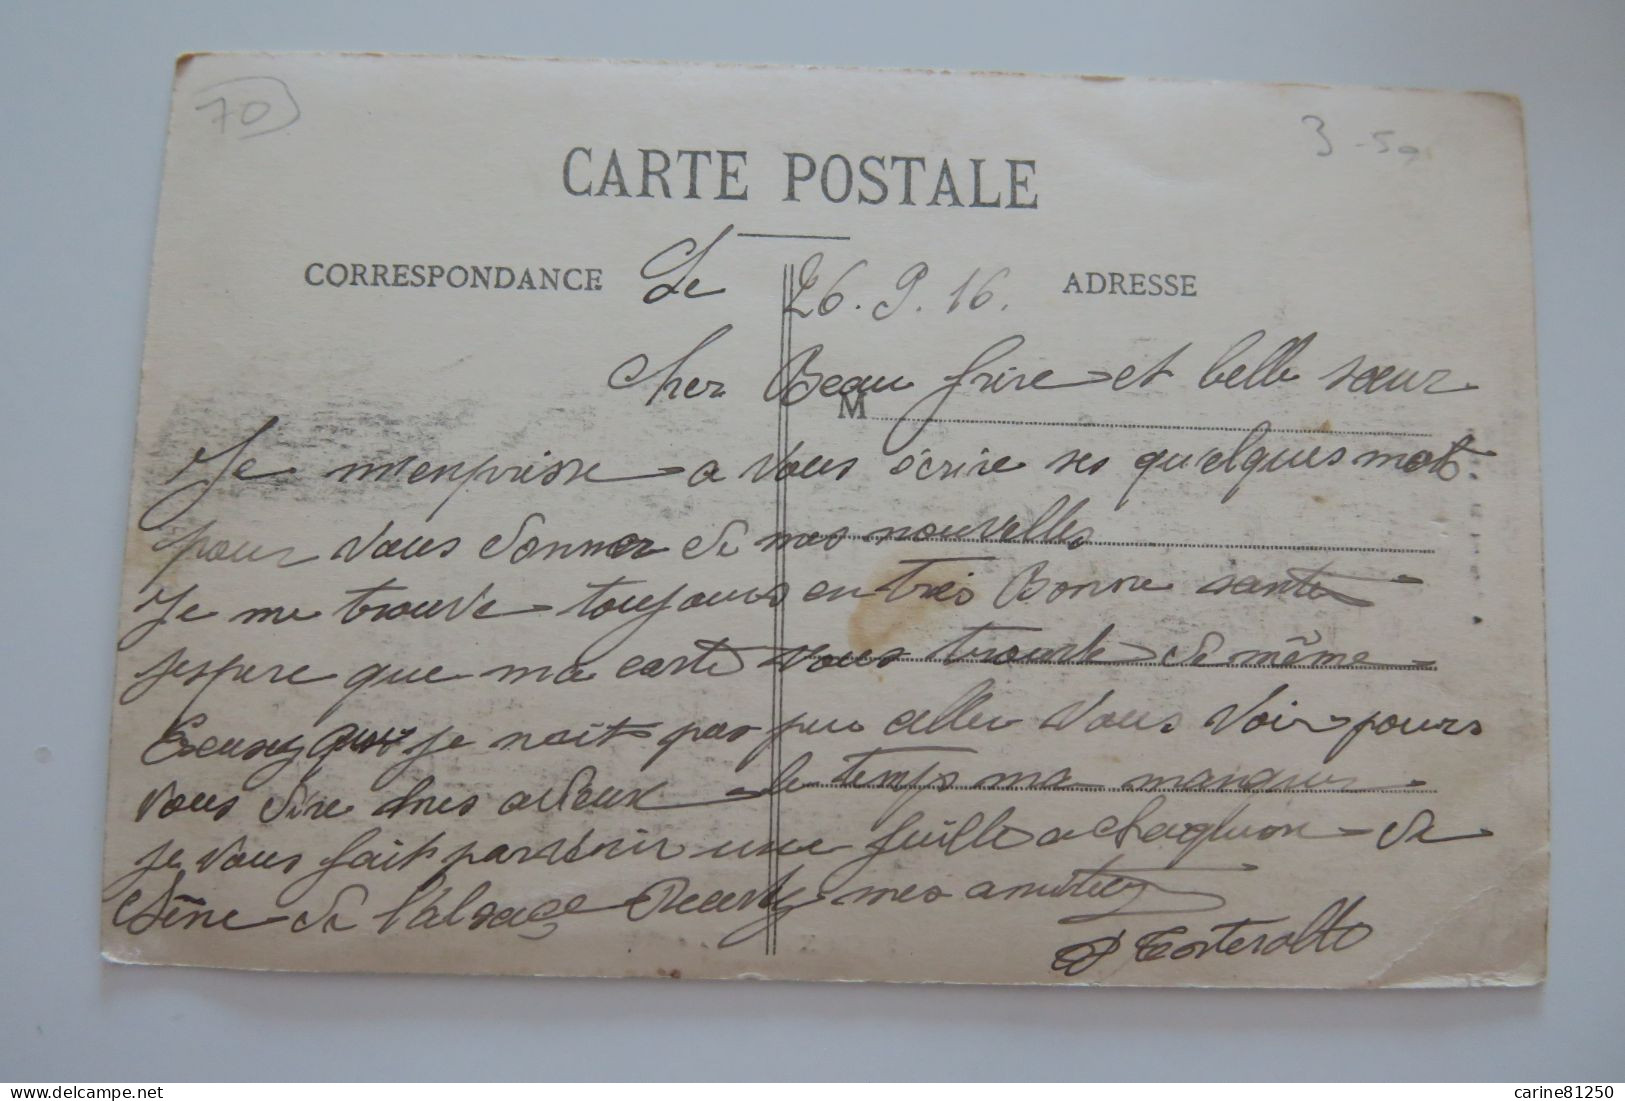 70
3-50
CARTE POSTALE
CORRESPONDANCE Le 26. 9. 16. ADRESSE
Cher Beau frire et belle sœur
M
Je m'enprisse a vous s'écrire ses quelques mots
pour vous donner de mes nouvelles
Je me trouve toujours en très Bonne sante
jespere que ma carte vous trouve de même
Excusez que je nait pas pu aller vous voir pours
vous dire mes adieux le temps ma manquer
je vous fait parvenir une feuille a chaquon de
chêne de l'alsace Recevez mes amitiez
delcampe.net
carine81250